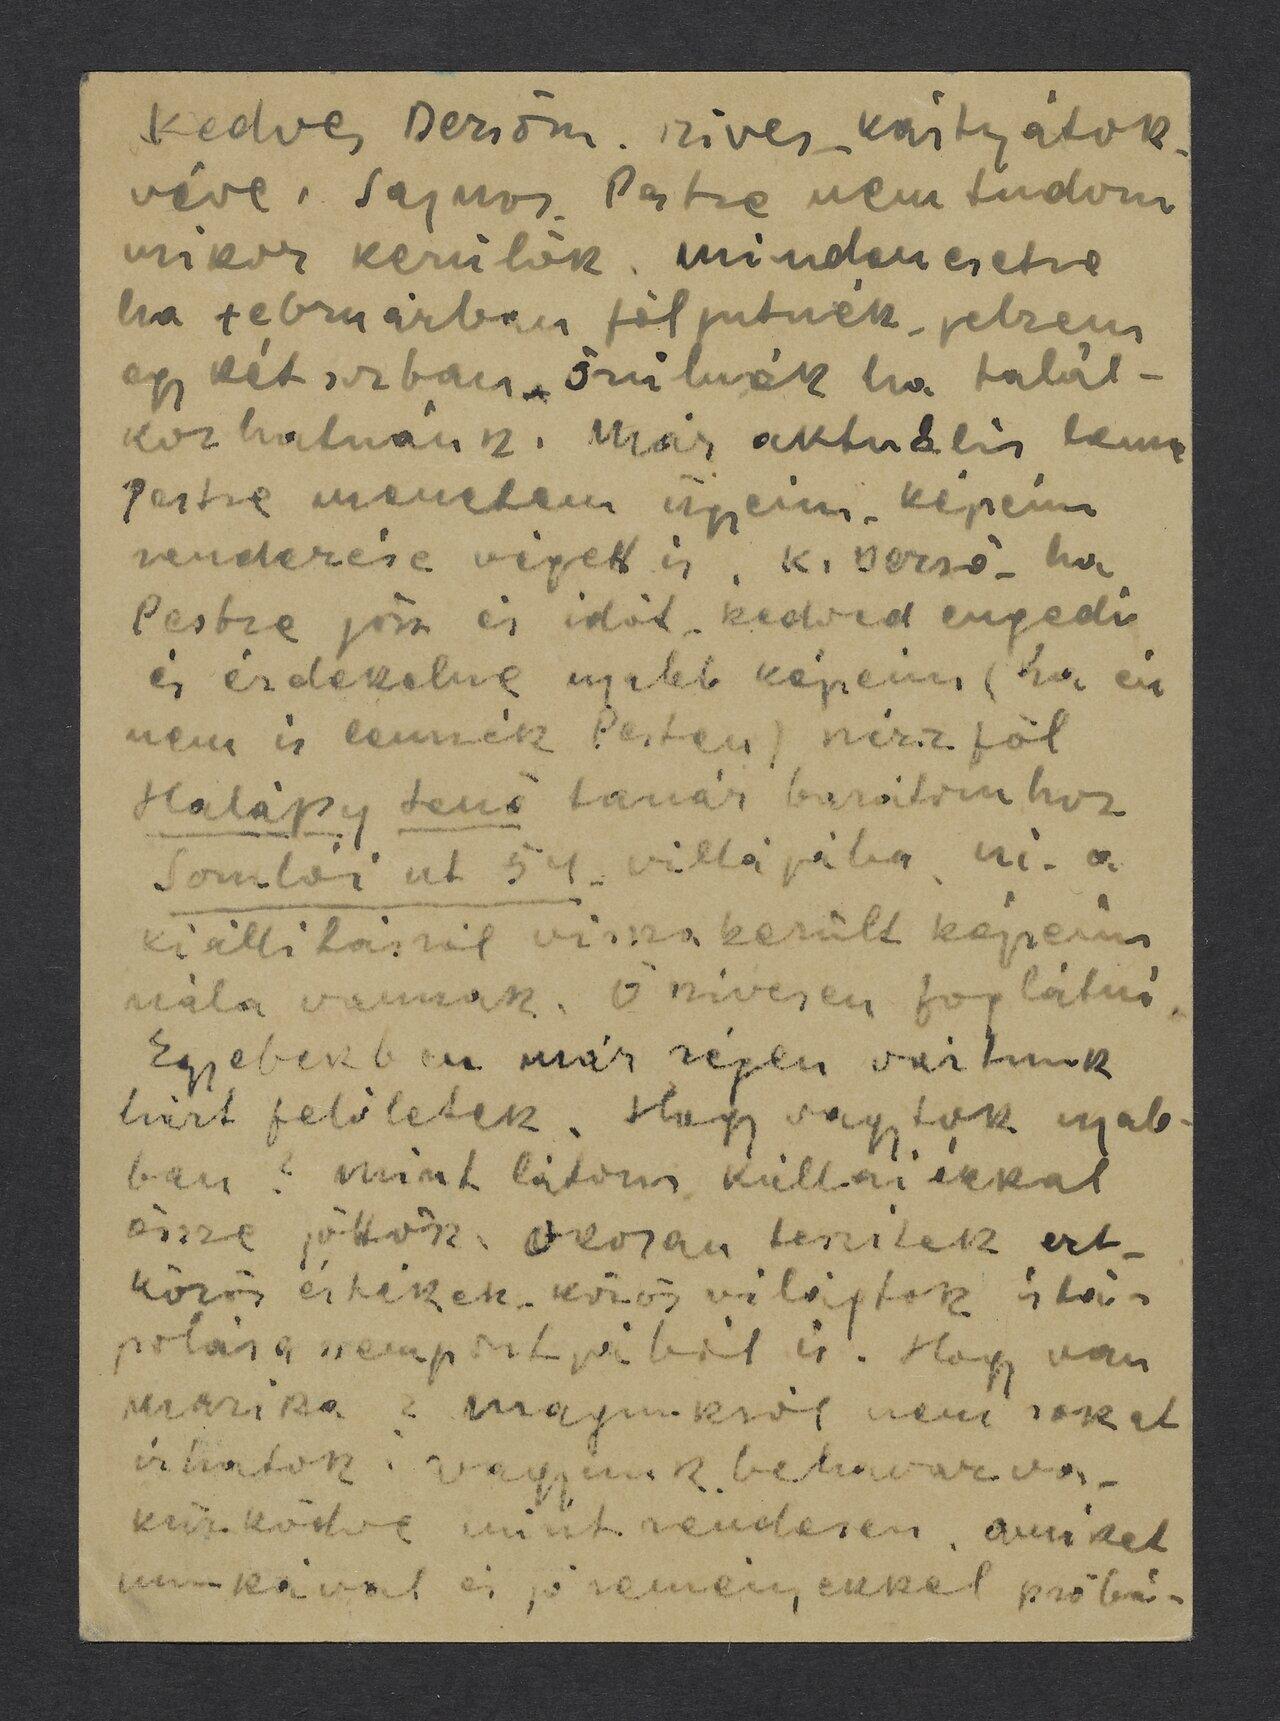 Kedves Dersőm. szives kártyátok
véve. Sajnos Pestre nem tudom
mikor kerülök. mindenesetre
ha februárban följutnék - jelzem
egy két sorban. Örülnék ha talál-
kozhatnánk. Már aktuális lenne
Pestre menetem ügyeim - képeim
rendezése végett is. K. Derső - ha
Pestre jösz és időt - kedved engedi
és érdekelne ujabb képeim (ha én
nem is lennék Pesten) nézz föl
Halápy Jenő tanár barátomhoz
Somlói ut 54. villájába, mi- a
kiállitásról vissza került képeim
nála vannak. Ő szivesen fog látni.
Egyebekben már régen vártunk
hirt felőletek. Hogy vagytok ujab-
ban? mint látom Küllaiékkal
össze jöttök. Okosan teszitek ert-
közös értékek - közös világtok istá-
polása szempontjából is. Hogy van
Marika? magunkról nem sokat
irhatok: vagyunk behavazva -
küzködve mint rendesen, amiket
munkával és jóreményekkel próbá-